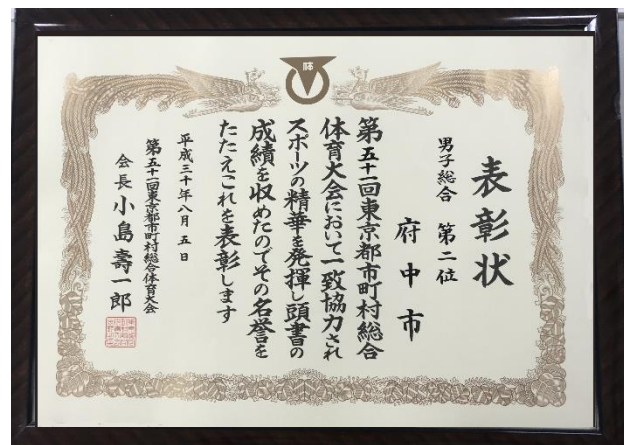 表彰状
男子総合 第二位
府中市
第五十一回東京都市町村総合
体育大会において一致協力され
スポーツの精華を発揮し頭書の
成績を収めたのでその名誉を
たたえこれを表彰します
平成三十年八月五日
第五十一回東京都市町村総合体育大会
会長 小島壽一郎